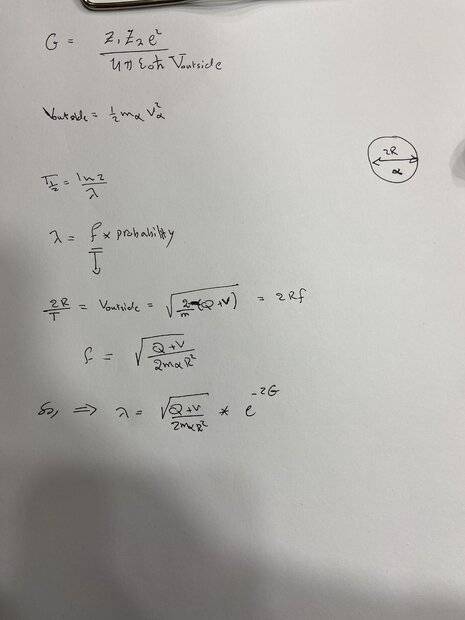 G = Z₁ Z₂ e² / 4π ε₀ ħ Voutside
Voutside = ½ mα Vα²
T½ = ln 2 / λ
λ = f × probability
2R / T = Voutside = √(2/m (Q + V)) = 2Rf
f = √(Q + V / 2mαR²)
So, ⇒ λ = √(Q + V / 2mαR²) * e⁻²ᴳ
2R
α